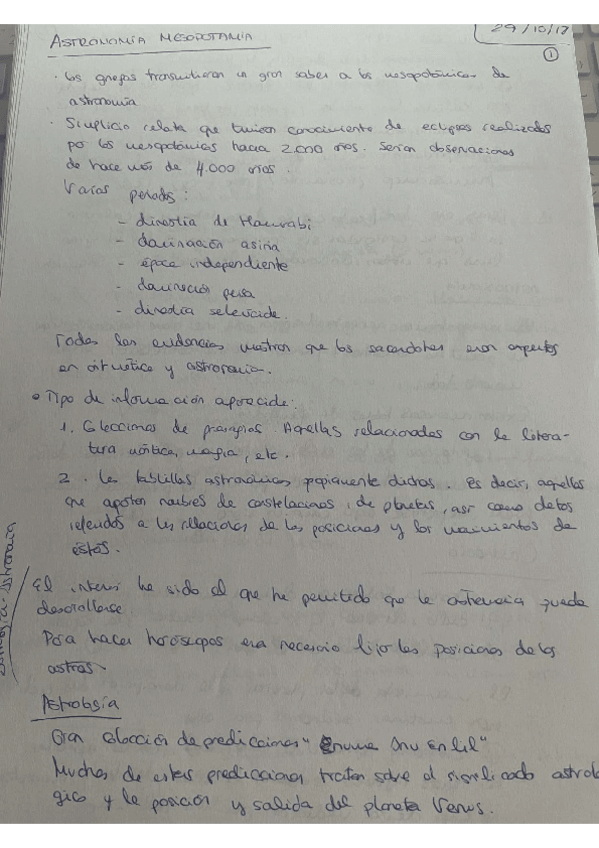 29/10/17
1
ASTRONOMÍA MESOPOTAMIA
· Los griegos transmitieron un gran saber a los mesopotámicos de
astronomía
· Simplicio relata que tuvieron conocimiento de eclipses realizados
por los mesopotámicos hacia 2.000 años. Serían observaciones
de hace más de 4.000 años.
Varios periodos:
- dinastía de Hamurabi
- dominación asiria
- época independiente
- dominación persa
- dinastía seleucida.
Todas las evidencias muestran que los sacerdotes eran expertos
en aritmética y astronomía.
Tipo de información aparecida:
1. Colecciones de presagios. Aquellas relacionadas con la litera-
tura mítica, magia, etc.
2. Las tablillas astronómicas propiamente dichas. Es decir, aquellas
que aportan nombres de constelaciones, de planetas, así como datos
referidos a las relaciones de las posiciones y los movimientos de
éstos.
El interés ha sido el que ha permitido que la astronomía pueda
desarrollarse
Para hacer horóscopos era necesario fijar las posiciones de los
astros
Astrología
Gran colección de predicciones "Enuma Anu Enlil"
Muchas de estas predicciones tratan sobre el significado astroló
gico y la posición y salida del planeta Venus.